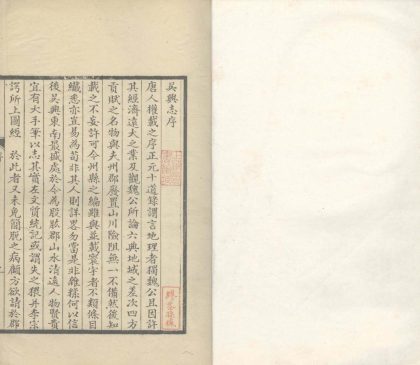 吳興志序
唐人權載之序正元十道錄謂言地理者獨魏公且因許
其經濟遠大之業及觀魏公所論六典地域之差次四方
貢賦之名物與夫州郡廢置山川險阻無一不備然後知
載之不妄許可今州縣之編雖與並載寰宇者不類條目
纖悉亦豈易為苟非其人則詳畧勿當是非雜糅何以信
後吳興東南最盛處於今為股肱郡山水清遠人物賢貴
宜有大手筆以志其實左文質統記或謂失之猥并李宗
諤所上圖經 於此者又未免簡脫之病顧方欲請於郡